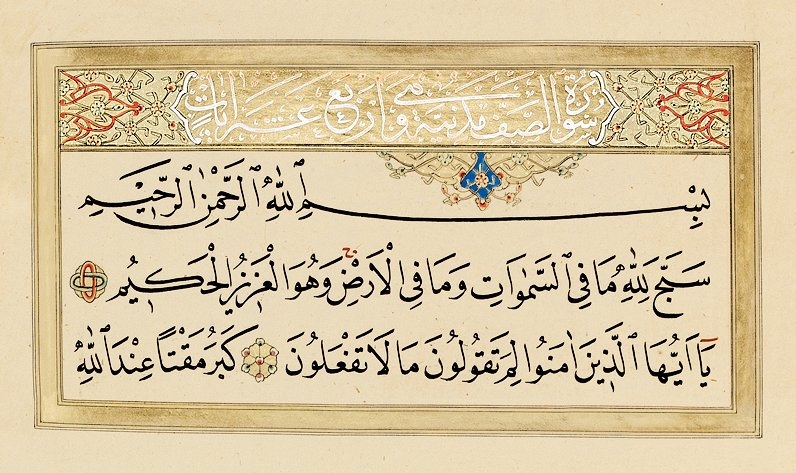 سُورَةُ الصَّفِّ مَدَنِيَّةٌ وَهِىَ اَرْبَعَ عَشَرَ اٰيَاتٍ
بِسْمِ اللّٰهِ الرَّحْمٰنِ الرَّحِيمِ
سَبَّحَ لِلّٰهِ مَا فِي السَّمٰوَاتِ وَمَا فِي الْاَرْضِۚ وَهُوَ الْعَزِيزُ الْحَكِيمُ
يَٓا اَيُّهَا الَّذِينَ اٰمَنُوا لِمَ تَقُولُونَ مَا لَا تَفْعَلُونَ كَبُرَ مَقْتاً عِنْدَ اللّٰهِ